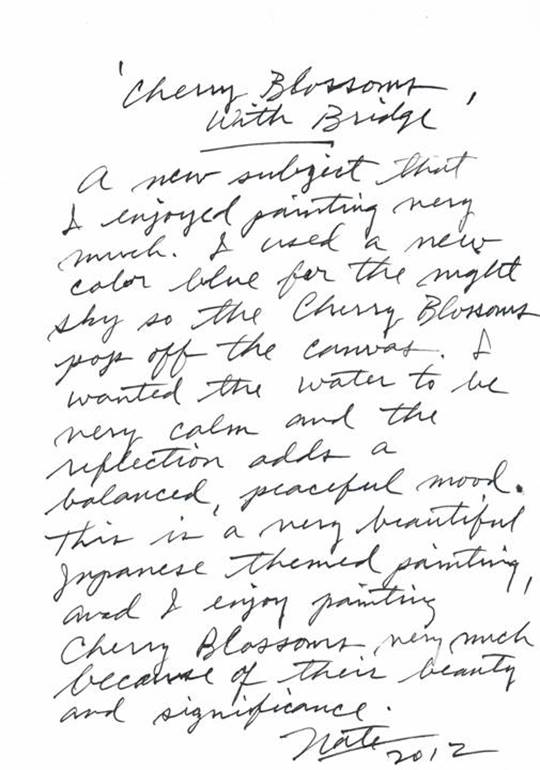 'Cherry Blossoms
With Bridge'
A new subject that
I enjoyed painting very
much. I used a new
color blue for the night
sky so the Cherry Blossoms
pop off the canvas. I
wanted the water to be
very calm and the
reflection adds a
balanced, peaceful mood.
This is a very beautiful
Japanese themed painting,
and I enjoy painting
Cherry Blossoms very much
because of their beauty
and significance.
Nate 2012